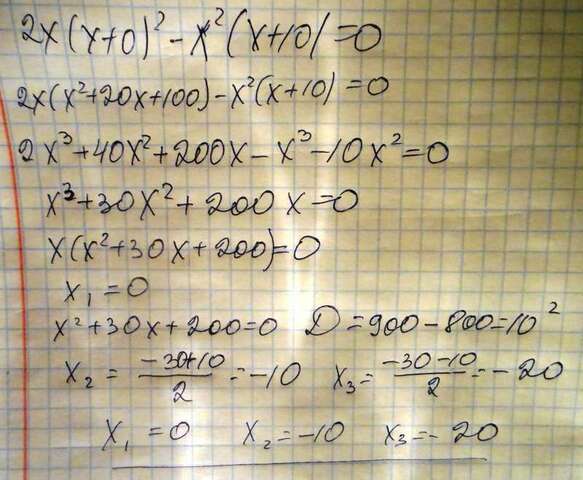 2x(x+0)² - x²(x+10)=0
2x(x²+20x+100)-x²(x+10)=0
2x³+40x²+200x-x³-10x²=0
x³+30x²+200x=0
x(x²+30x+200)=0
x₁=0
x²+30x+200=0 D=900-800=10²
x₂ = (-30+10)/2 = -10 x₃ = (-30-10)/2 = -20
x₁=0 x₂=-10 x₃=-20